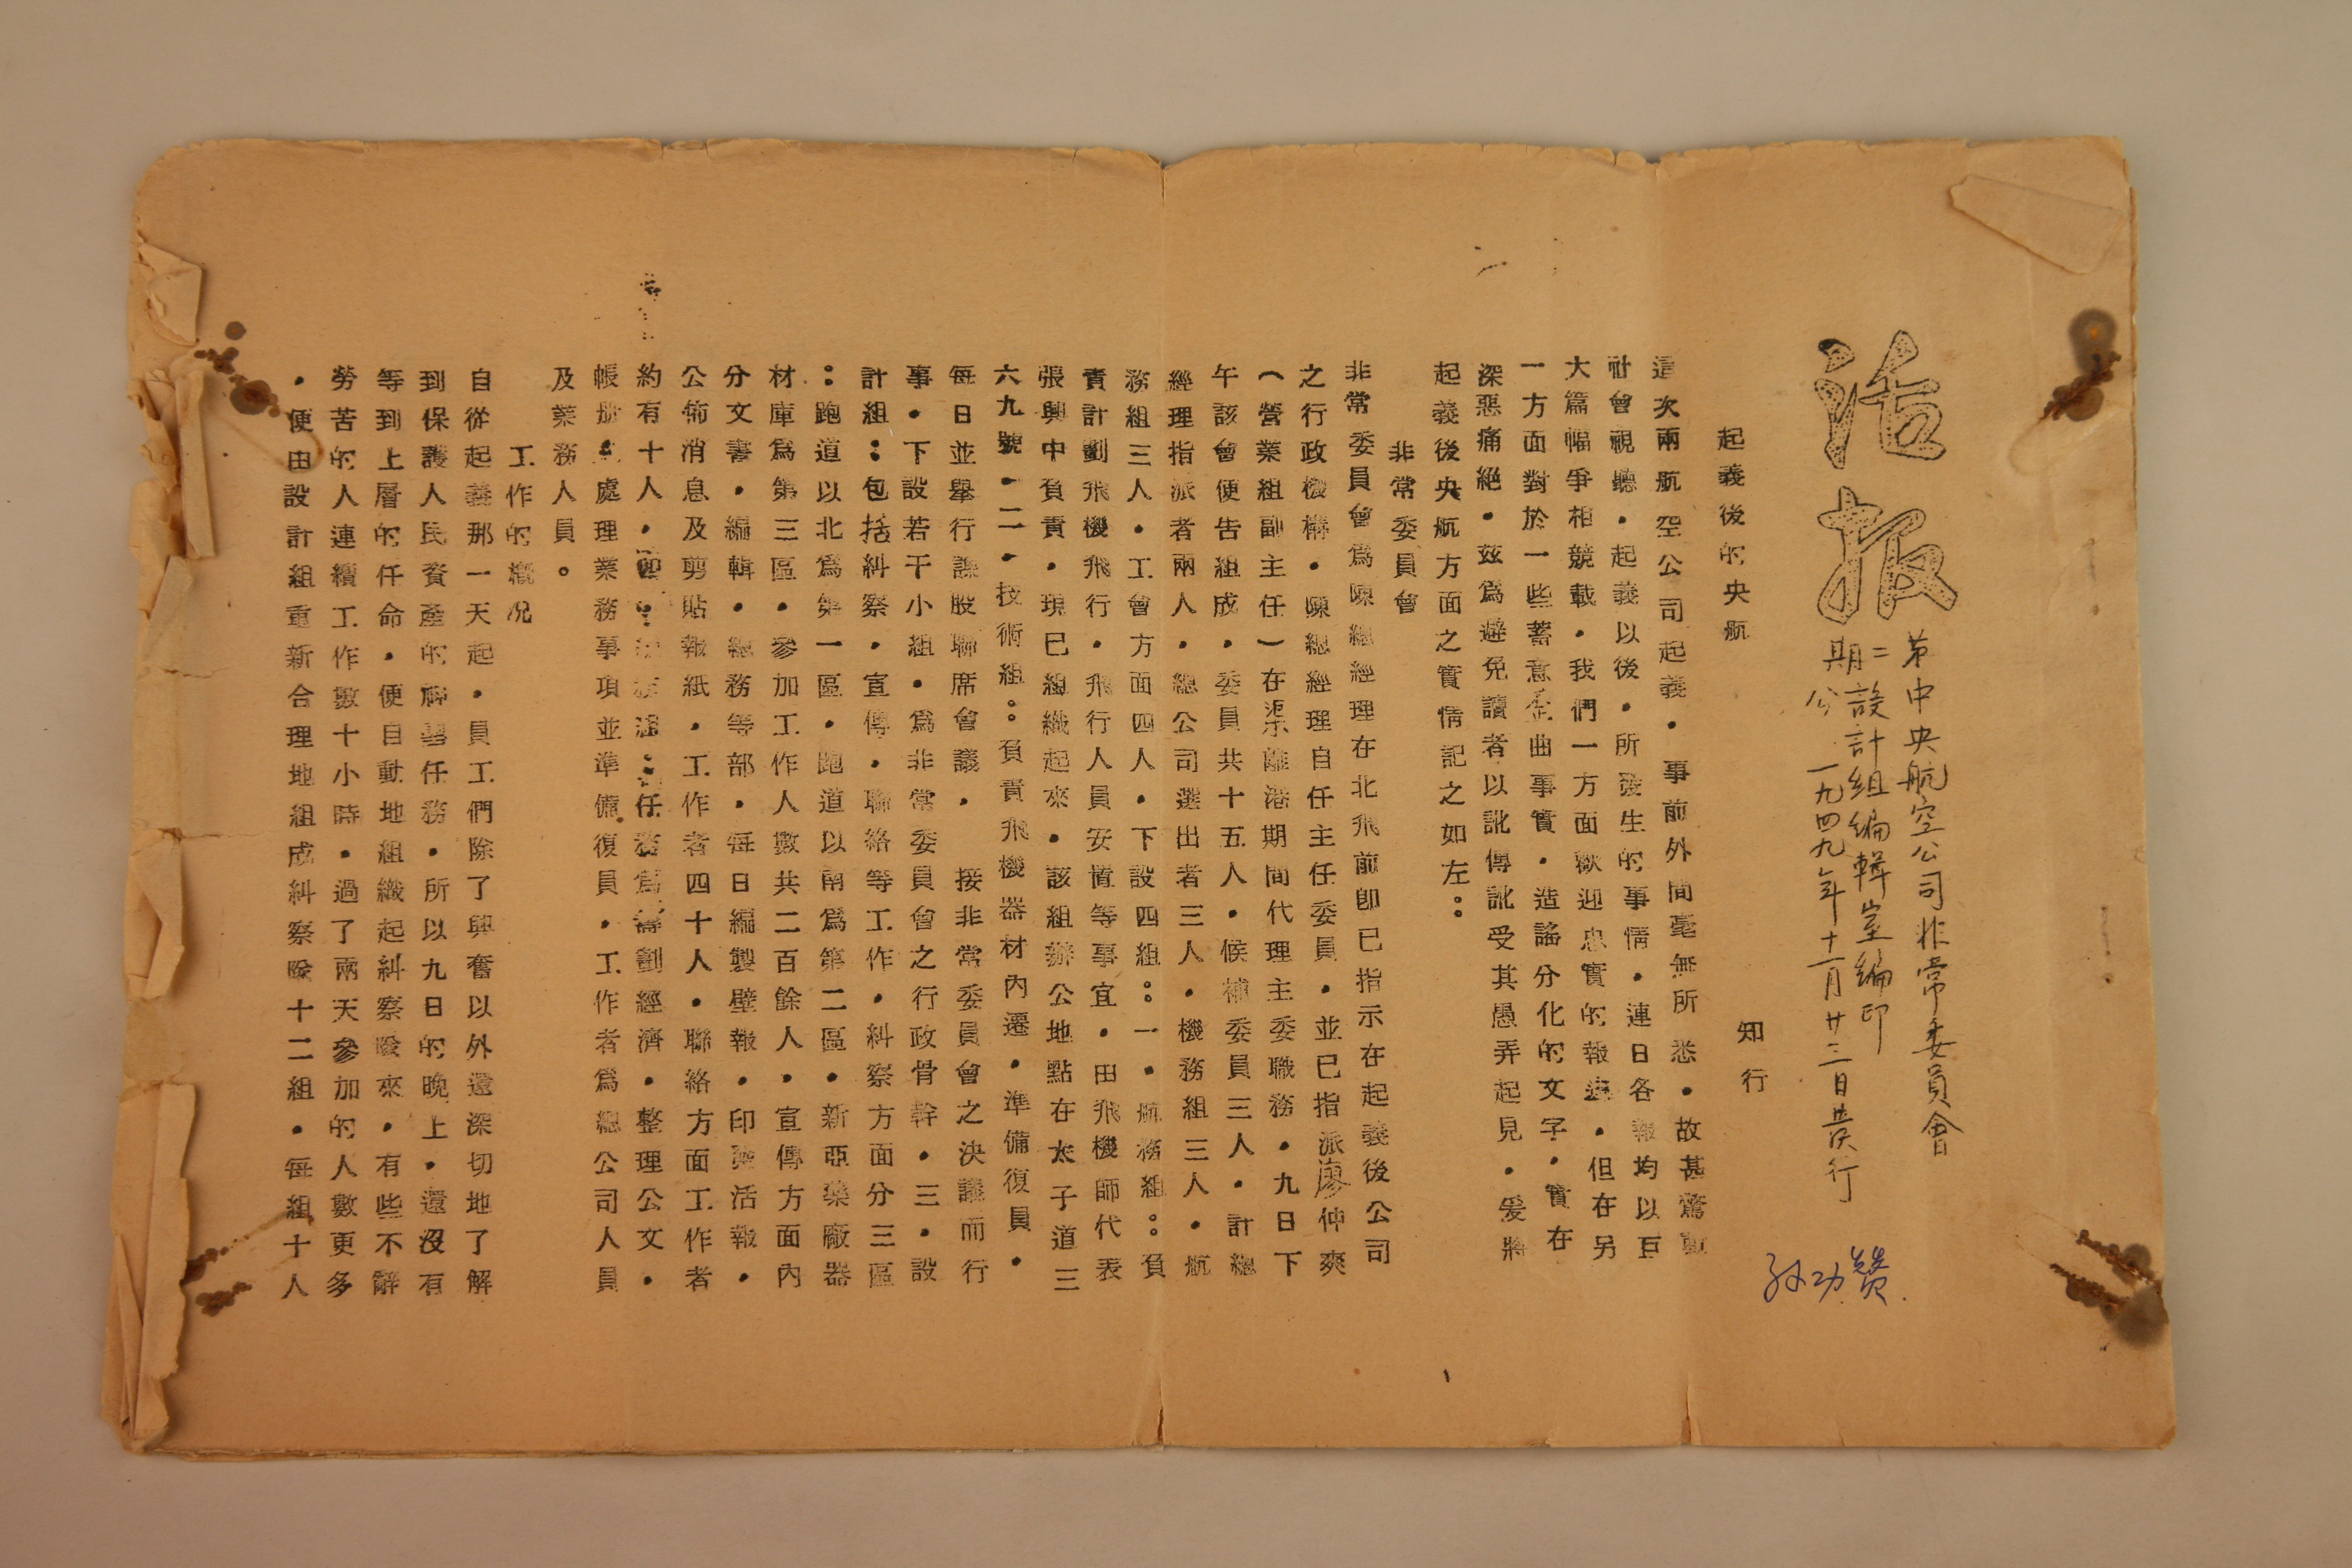 活报
第二期
中央航空公司非常委員會
設計組編輯室編印
公一九四九年十一月廿三日發行
孙功贊
起義後的央航 知行
這次兩航空公司起義・事前外間毫無所悉・故甚驚動
社會視聽・起義以後・所發生的事情・連日各報均以巨
大篇幅爭相競載・我們一方面歡迎忠實的報導・但在另
一方面對於一些蓄意歪曲事實・造謠分化的文字・實在
深惡痛絕・茲爲避免讀者以訛傳訛受其愚弄起見・爰將
起義後央航方面之實情記之如左：
非常委員會
非常委員會爲陳總經理在北飛前即已指示在起義後公司
之行政機構・陳總經理自任主任委員・並已指派廖仲爽
（營業組副主任）在渠離港期間代理主委職務・九日下
午該會便告組成・委員共十五人・候補委員三人・計總
經理指派者兩人・總公司選出者三人・機務組三人・航
務組三人・工會方面四人・下設四組：一・航務組：負
責計劃飛機飛行・飛行人員安置等事宜・由飛機師代表
張興中負責・現已組織起來・該組辦公地點在太子道三
六九號・二・技術組：負責飛機器材內遷・準備復員・
每日並舉行課股聯席會議・ 接非常委員會之決議而行
事・下設若干小組・爲非常委員會之行政骨幹・三・設
計組：包括糾察・宣傳・聯絡等工作・糾察方面分三區
：跑道以北爲第一區・跑道以南爲第二區・新亞藥廠器
材庫爲第三區・參加工作人數共二百餘人・宣傳方面內
分文書・編輯・總務等部・每日編製壁報・印發活報・
公佈消息及剪貼報紙・工作者四十人・聯絡方面工作者
約有十人・四：任務爲籌劃經濟・整理公文・
帳册・處理業務事項並準備復員・工作者爲總公司人員
及業務人員。
工作的概况
自從起義那一天起・員工們除了興奮以外還深切地了解
到保護人民資產的神聖任務・所以九日的晚上・還沒有
等到上層的任命・便自動地組織起糾察隊來・有些不辭
勞苦的人連續工作數十小時・過了兩天參加的人數更多
・便由設計組重新合理地組成糾察隊十二組・每組十人